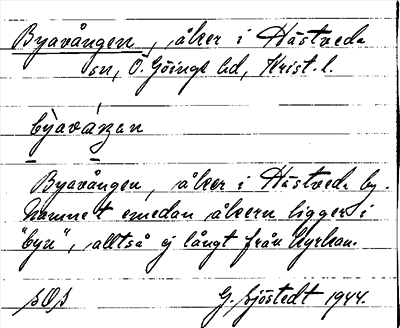 Byavången, åker i Hästveda
sn, Ö. Göinge hd, Krist. l.
byavaŋan
Byavången, åker i Hästveda by.
Namnet emedan åkern ligger i
"byn", alltså ej långt från kyrkan.
G. Sjöstedt 1944.